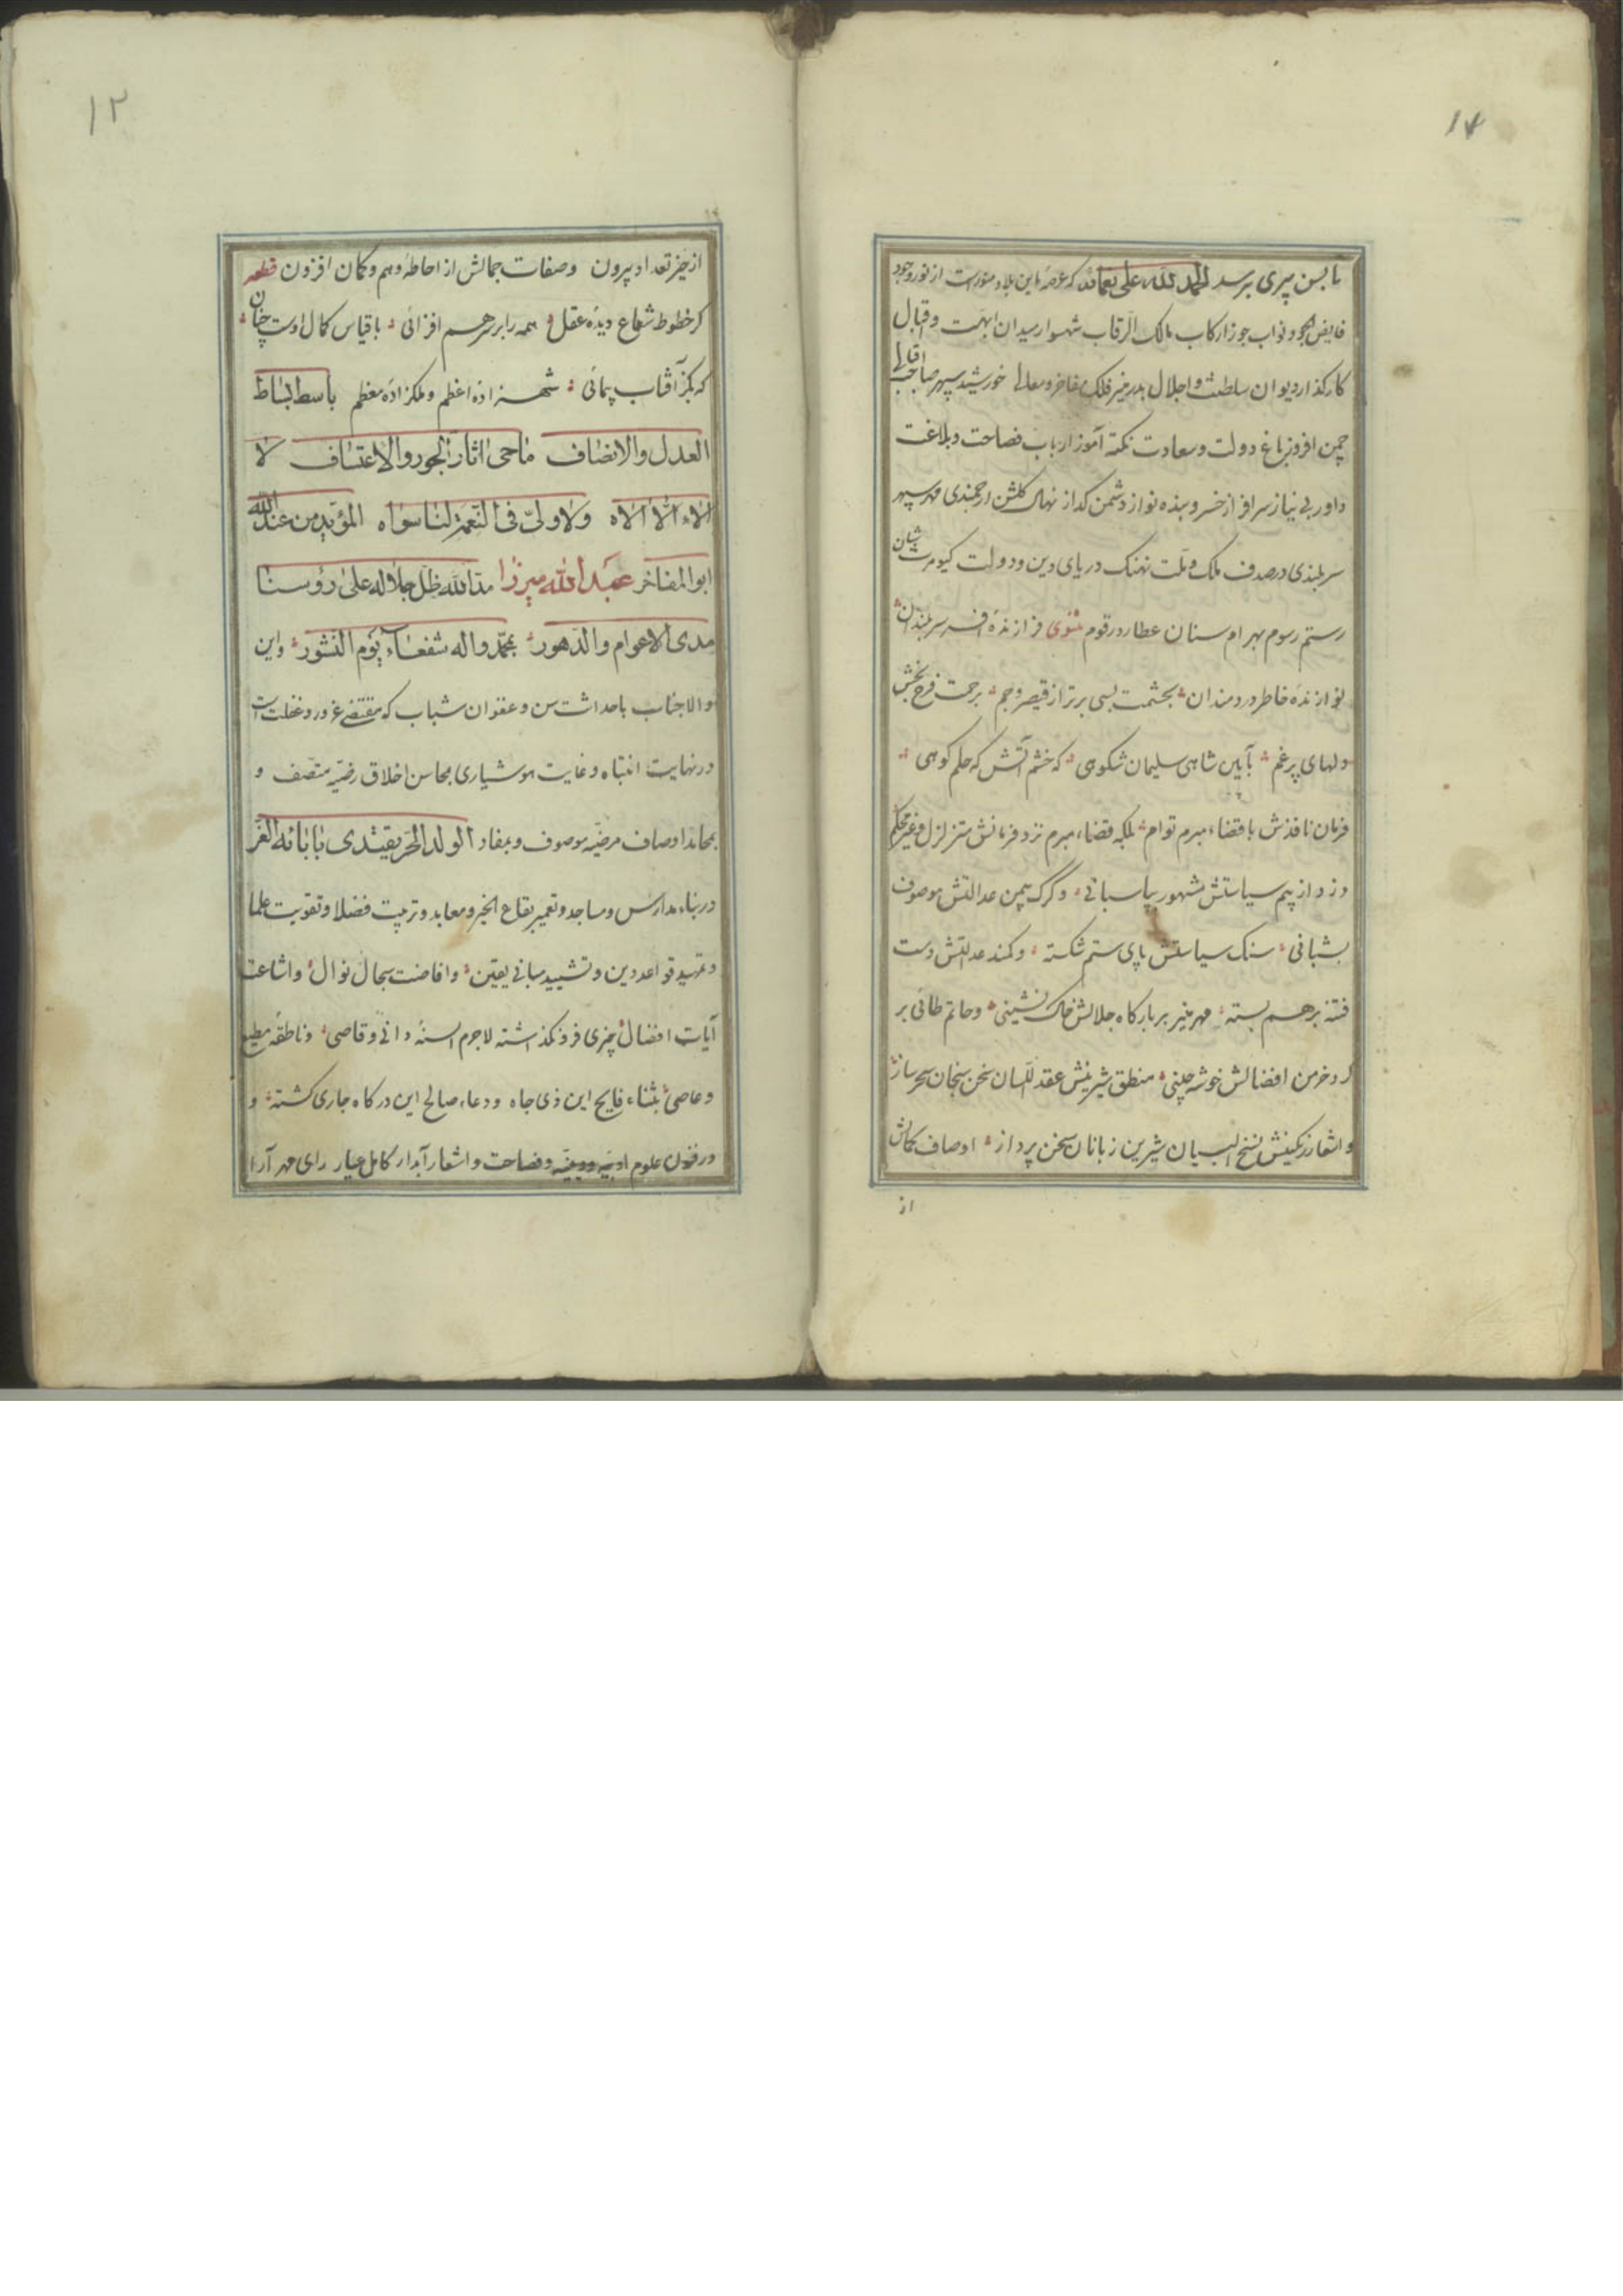 ۱۷
تا بسن پیری برسد الحمد لله علی نعمائه که عرصهٔ این بلاد منور است از نور وجود
فایض الجود نواب جوزا رکاب مالک الرقاب شهسوار میدان ابهت و اقبال
کارکذار دیوان سلطنت و اجلال بدر منیر فلک مفاخر و معالی خورشید سپهر صاحب اقبالی
چمن افروز باغ دولت و سعادت نکته آموز ارباب فصاحت و بلاغت
داور بی نیاز سرافراز خسرو بنده نواز دشمن کداز نهال کلشن ارجمندی مهر سپهر
سربلندی در صدف ملک و ملت نهنک دریای دین و دولت کیومرث شان
رستم رسوم بهرام سنان عطارد رقوم مثنوی فرازندهٔ افسر سربلندان
نوازندهٔ خاطر دردمندان بحشمت بسی برتر از قیصر و جم برحمت فرح بخش
دلهای پرغم بآیین شاهی سلیمان شکوهی که خشم آتش که حلم کوهی
فرمان نافذش با قضاء مبرم توام بلکه قضاء مبرم نزد فرمانش متزلزل و غیر محکم
دزد از بیم سیاستش مشهور بپاسبانی و کرک بیمن عدالتش موصوف
بشبانی سنک سیاستش پای ستم شکسته و کمند عدالتش دست
فتنه برهم بسته مهر منیر بر بارکاه جلالش خاک نشینی و حاتم طائی بر
کرد خرمن افضالش خوشه چینی منطق شیرینش عقد اللسان سخن سنجان سحرساز
و اشعار رنکینش نسخ البیان شیرین زبانان سخن پرداز اوصاف کمالش
از
۱۲
از حیز تعداد بیرون و صفات جمالش از احاطهٔ وهم و کمان افزون قطعه
کر خطوط شعاع دیدهٔ عقل همه را بر سر هم افزائی با قیاس کمال اوست چنان
که بکز آفتاب پیمائی شهزادهٔ اعظم و ملکزادهٔ معظم باسط بساط
العدل والانصاف ماحی اثار الجور والاعتساف لا
الاء الا الاه ولا ولی فی النعمة لنا سواه المؤید من عند الله
ابو المفاخر عبد الله میرزا مد الله ظل جلاله علی رؤسنا
مدی الاعوام والدهور بمحمد واله شفعاء یوم النشور و این
والاجناب با حداثت سن و عنفوان شباب که مقتضی غرور و غفلت است
در نهایت انتباه و غایت هوشیاری بمحاسن اخلاق رضیه متصف و
بمحامد اوصاف مرضیه موصوف و بمفاد الولد الحر یقتدی بابائه الغر
در بناء مدارس و مساجد و تعمیر بقاع الخیر و معابد و تربیت فضلا و تقویت علما
و تمهید قواعد دین و تشیید مبانی یقین و افاضت سجال نوال و اشاعت
آیات افضال چیزی فرو نکذاشته لاجرم السنهٔ دانی و قاصی و ناطقهٔ مطیع
و عاصی بثناء فایح این ذی جاه و دعاء صالح این درکاه جاری کشته و
در فنون علوم ادبیه و فصاحت و اشعار آبدار کامل عیار رای مهر آرا